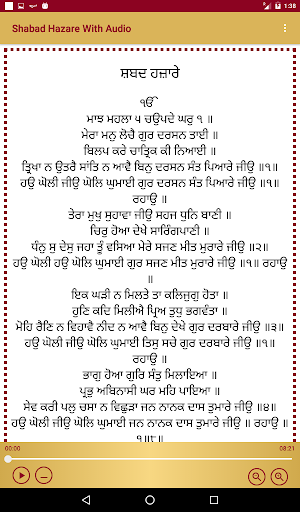 1:38
Shabad Hazare With Audio
ਸ਼ਬਦ ਹਜ਼ਾਰੇ
ੴ
ਮਾਝ ਮਹਲਾ ੫ ਚਉਪਦੇ ਘਰੁ ੧ ॥
ਮੇਰਾ ਮਨੁ ਲੋਚੈ ਗੁਰ ਦਰਸਨ ਤਾਈ ॥
ਬਿਲਪ ਕਰੇ ਚਾਤ੍ਰਿਕ ਕੀ ਨਿਆਈ ॥
ਤ੍ਰਿਖਾ ਨ ਉਤਰੈ ਸਾਂਤਿ ਨ ਆਵੈ ਬਿਨੁ ਦਰਸਨ ਸੰਤ ਪਿਆਰੇ ਜੀਉ ॥੧॥
ਹਉ ਘੋਲੀ ਜੀਉ ਘੋਲਿ ਘੁਮਾਈ ਗੁਰ ਦਰਸਨ ਸੰਤ ਪਿਆਰੇ ਜੀਉ ॥੧॥
ਰਹਾਉ ॥
ਤੇਰਾ ਮੁਖੁ ਸੁਹਾਵਾ ਜੀਉ ਸਹਜ ਧੁਨਿ ਬਾਣੀ ॥
ਚਿਰੁ ਹੋਆ ਦੇਖੇ ਸਾਰਿੰਗਪਾਣੀ ॥
ਧੰਨੁ ਸੁ ਦੇਸੁ ਜਹਾ ਤੂੰ ਵਸਿਆ ਮੇਰੇ ਸਜਣ ਮੀਤ ਮੁਰਾਰੇ ਜੀਉ ॥੨॥
ਹਉ ਘੋਲੀ ਹਉ ਘੋਲਿ ਘੁਮਾਈ ਗੁਰ ਸਜਣ ਮੀਤ ਮੁਰਾਰੇ ਜੀਉ ॥੧॥ ਰਹਾਉ
॥
ਇਕ ਘੜੀ ਨ ਮਿਲਤੇ ਤਾ ਕਲਿਜੁਗੁ ਹੋਤਾ ॥
ਹੁਣਿ ਕਦਿ ਮਿਲੀਐ ਪ੍ਰਿਅ ਤੁਧੁ ਭਗਵੰਤਾ ॥
ਮੋਹਿ ਰੈਣਿ ਨ ਵਿਹਾਵੈ ਨੀਦ ਨ ਆਵੈ ਬਿਨੁ ਦੇਖੇ ਗੁਰ ਦਰਬਾਰੇ ਜੀਉ ॥੩॥
ਹਉ ਘੋਲੀ ਜੀਉ ਘੋਲਿ ਘੁਮਾਈ ਤਿਸੁ ਸਚੇ ਗੁਰ ਦਰਬਾਰੇ ਜੀਉ ॥੧॥
ਰਹਾਉ ॥
ਭਾਗੁ ਹੋਆ ਗੁਰਿ ਸੰਤੁ ਮਿਲਾਇਆ ॥
ਪ੍ਰਭੁ ਅਬਿਨਾਸੀ ਘਰ ਮਹਿ ਪਾਇਆ ॥
ਸੇਵ ਕਰੀ ਪਲੁ ਚਸਾ ਨ ਵਿਛੁੜਾ ਜਨ ਨਾਨਕ ਦਾਸ ਤੁਮਾਰੇ ਜੀਉ ॥੪॥
ਹਉ ਘੋਲੀ ਜੀਉ ਘੋਲਿ ਘੁਮਾਈ ਜਨ ਨਾਨਕ ਦਾਸ ਤੁਮਾਰੇ ਜੀਉ ॥ ਰਹਾਉ ॥
੧॥੮॥
00:00
08:21